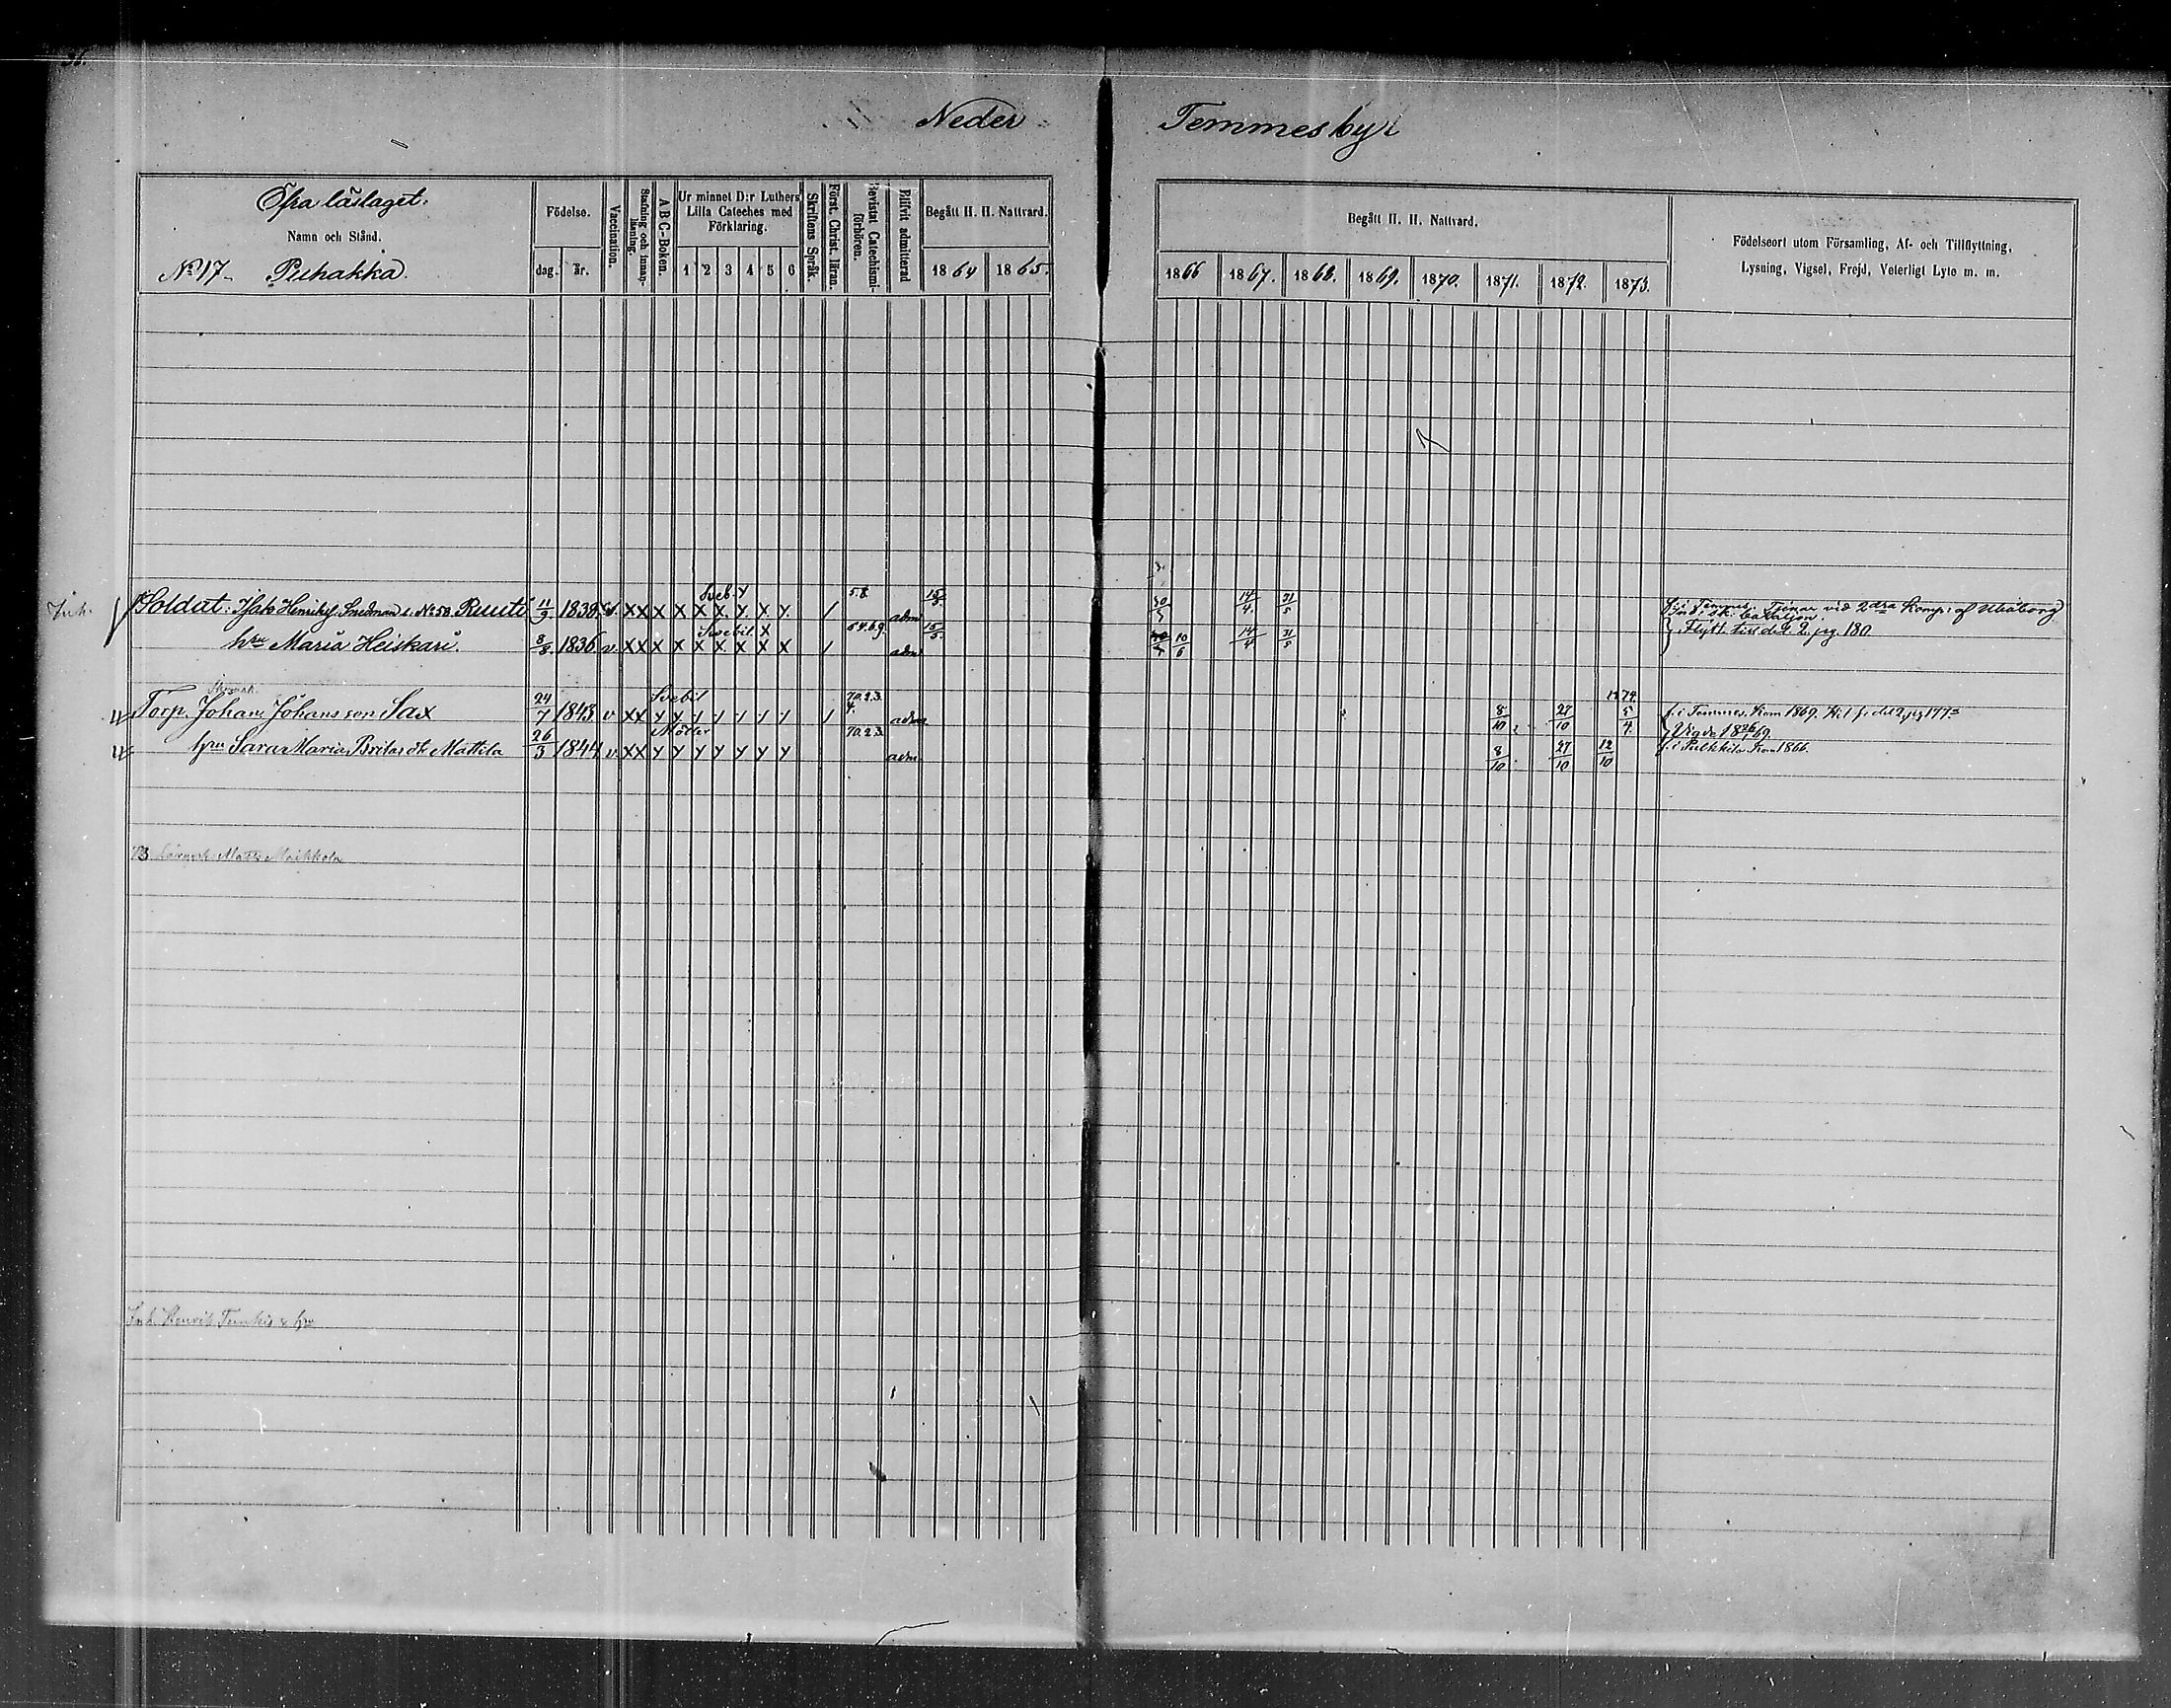 36.
Neder Temmes by
Öfra läslaget.
Namn och Stånd.
No 17 Puhakka.
Födelse.
dag. år.
Vaccination.
Stafning och innanläsning.
A B C-Boken.
Ur minnet D:r Luthers Lilla Cateches med Förklaring.
1 2 3 4 5 6
Skriftens Språk.
Först. Christ. läran.
Bevistat Catechismi-förhören.
Blifvit admitterad
Begått H. H. Nattvard.
1864 1865.
Begått H. H. Nattvard.
1866 1867. 1868. 1869. 1870. 1871. 1872. 1873.
Födelseort utom Församling, Af- och Tillflyttning,
Lysning, Vigsel, Frejd, Veterligt Lyte m. m.
Inh. Soldat: Henrik No 58. Ruuti 11/9 1839. XX X X X X X X X / 5.8 adm 15/5 30/5 14/4. 31/5 f. i Temmes. Tjenar vid 2dra Komp: af Uleåborg
Ind. sk. bataljon.
Svebil. X
hru Maria Heiskari. 8/8 1836 v. XX X X X X X X X / 64.69. adm 15/5 10/6 14/4 31/5 Flytt till del 2. pag 180
Svebil
Torp. Johan Johansson Sax 24/7 1843 v XX / 70.2.3. 4. adm 8/10 27/10 1874. 5/4. f. i Temmes. Kom 1869.
Vigda 18 69.
Möder
hru Sara Maria Brita dr Mattila 26/3 1844 v. XX 70.2.3 adm. 8/10 27/10 12/10 f. i Pulkkila Kom 1866.
73 Matts Maikkola
Inh. Henrik & hru